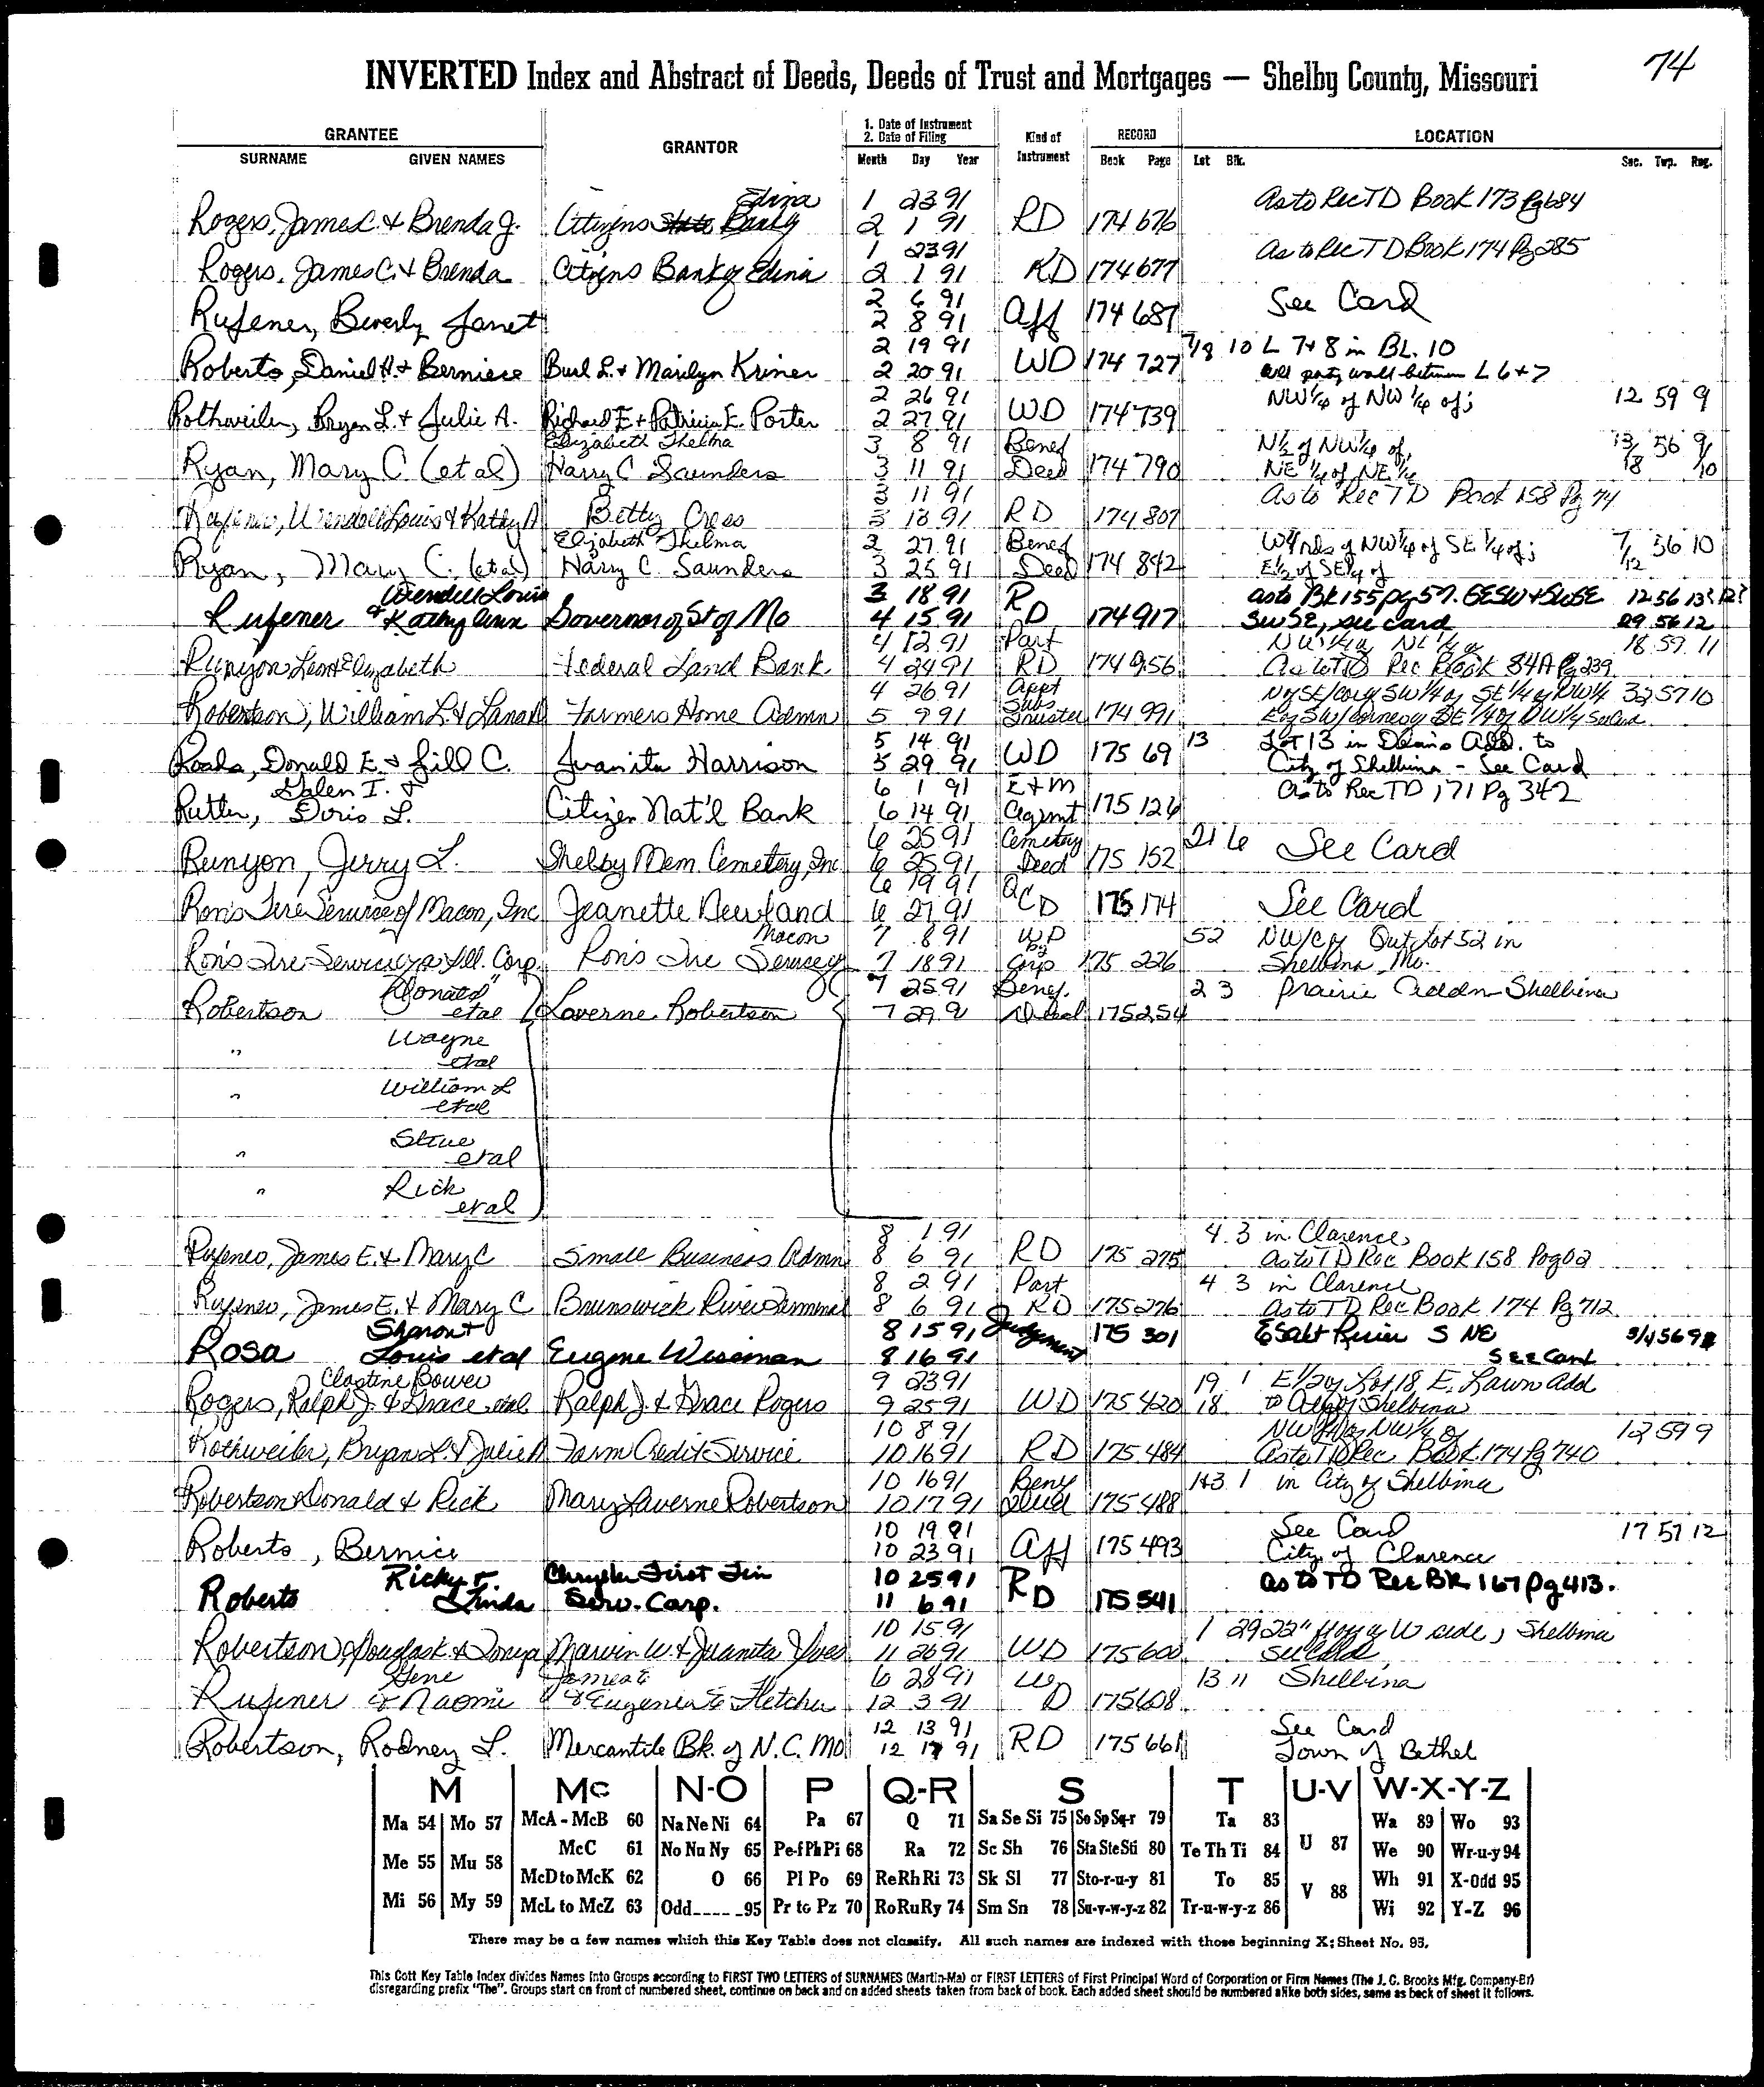 74
INVERTED Index and Abstract of Deeds, Deeds of Trust and Mortgages — Shelby County, Missouri
GRANTEE GRANTOR 1. Date of Instrument Kind of Instrument RECORD LOCATION
2. Date of Filing
SURNAME GIVEN NAMES Month Day Year Book Page Lot Blk. Sec. Twp. Rng.
Edina 1 23 91 As to Rec TD Book 173 Pg 684
Rogers, James C. & Brenda J. Citizens State Bank 2 1 91 RD 174 676
1 23 91 As to Rec TD Book 174 Pg 285
Rogers, James C. & Brenda Citizens Bank of Edina 2 1 91 RD 174 677
2 6 91 See Card
Rufener, Beverly Janet 2 8 91 Aff 174 687
2 19 91 7/8 10 L 7+8 in BL. 10
Roberts, Daniel H. & Berniece Burl L. & Marilyn Kriner 2 20 91 WD 174 727 all party wall between L 6+7
2 26 91 NW 1/4 of NW 1/4 of; 12 59 9
Rothweiler, Bryan L. & Julie A. Richard E & Patricia E. Porter 2 27 91 WD 174 739
Elizabeth Thelma 3 8 91 Benef N 1/2 of NW 1/4 of, 13/ 56 9/
Ryan, Mary C. (et al) Harry C Saunders 3 11 91 Deed 174 790 NE 1/4 of NE 1/4 18 10
3 11 91 As to Rec TD Book 158 Pg 74
Rufener, Wendell Louis & Kathy A Betty Cress 3 18 91 RD 174 807
Elizabeth Thelma 2 27 91 Benef W Rds of NW 1/4 of SE 1/4 of; 7/ 56 10
Ryan, Mary C. (et al) Harry C. Saunders 3 25 91 Deed 174 842 E 1/2 of SE 1/4 of 12
Wendell Louis 3 18 91 R as to Bk 155 pg 57. 12 56 13
Rufener & Kathy Ann Governor of St of Mo 4 15 91 D 174 917 SWSE, see card 29 56 12
4 12 91 Part 18 59 11
Runyon Leon & Elizabeth Federal Land Bank 4 24 91 RD 174 956 As to TD Rec Book 84A Pg 239
4 26 91 Appt Subs 32 57 10
Robertson, William L. & Lana Farmers Home Admn 5 9 91 Trustee 174 991
5 14 91 13 Lot 13 in Add. to
Roads, Donald E. & Jill C. Juanita Harrison 5 29 91 WD 175 69 City of Shelbina - See Card
Galen I. & 6 1 91 E+M As to Rec TD 171 Pg 342
Rutter, Doris L. Citizen Nat'l Bank 6 14 91 Agrmt 175 126
6 25 91 Cemetery 21 6 See Card
Runyon, Jerry L. Shelby Mem. Cemetery, Inc 6 25 91 Deed 175 152
6 19 91 QC
Ron's Tire Service of Macon, Inc Jeanette Newland 6 27 91 D 175 174 See Card
Macon 7 8 91 WD by 52 NW/c of Out Lot 52 in
Ron's Tire Service, Ill. Corp. Ron's Tire Service of 7 18 91 Corp 175 226 Shelbina, Mo.
Donald 7 25 91 Benef. 2 3 Prairie Addn Shelbina
Robertson et al Laverne Robertson 7 29 91 Deed 175 254
" Wayne
et al
" William L
et al
" Steve
et al
" Rick
et al
8 1 91 4 3 in Clarence
Rufener, James E. & Mary C Small Business Admn 8 6 91 RD 175 275 As to TD Rec Book 158 Pg 602
8 2 91 Part 4 3 in Clarence
Rufener, James E. & Mary C Brunswick River Terminal 8 6 91 RD 175 276 As to TD Rec Book 174 Pg 712
Sharon & 8 15 91 Judgement 175 301 E Salt River S NE
Rosa Louis et al Eugene Wiseman 8 16 91 See Card
Clastine Bower 9 23 91 19 1 E 1/2 of Lot 18 E. Lawn Add
Rogers, Ralph J. & Grace et al Ralph J. & Grace Rogers 9 25 91 WD 175 420 18 to City of Shelbina
10 8 91 NW 1/4 of NW 1/4 of 12 59 9
Rothweiler, Bryan L. & Julie A Farm Credit Service 10 16 91 RD 175 484 As to TD Rec. Book 174 Pg 740
10 16 91 Benef 1+3 1 in City of Shelbina
Robertson Donald & Rick Mary Laverne Robertson 10 17 91 Deed 175 488
10 19 91 See Card 17 57 12
Roberts, Bernice 10 23 91 Aff 175 493 City of Clarence
Ricky & Chrysler First Fin 10 25 91 R as to TD Rec BK 167 Pg 413.
Roberts Linda Serv. Corp. 11 6 91 D 175 541
10 15 91 W side, Shelbina
Robertson, Douglas K. & Tonya Marvin W. & Juanita 11 26 91 WD 175 600 See Card
Gene James & 6 28 91 W 13 11 Shelbina
Rufener & Naomi Eugenia E Fletcher 12 3 91 D 175 608
12 13 91 See Card
Robertson, Rodney L. Mercantile Bk. of N.C. Mo 12 17 91 RD 175 661 Town of Bethel
M Mc N-O P Q-R S T U-V W-X-Y-Z
Ma 54 Mo 57 McA - McB 60 Na Ne Ni 64 Pa 67 Q 71 Sa Se Si 75 So Sp Sq-r 79 Ta 83 U 87 Wa 89 Wo 93
Me 55 Mu 58 McC 61 No Nu Ny 65 Pe-f Ph Pi 68 Ra 72 Sc Sh 76 Sta Ste Sti 80 Te Th Ti 84 We 90 Wr-u-y 94
McD to McK 62 O 66 Pl Po 69 Re Rh Ri 73 Sk Sl 77 Sto-r-u-y 81 To 85 V 88 Wh 91 X-Odd 95
Mi 56 My 59 McL to McZ 63 Odd----95 Pr to Pz 70 Ro Ru Ry 74 Sm Sn 78 Su-v-w-y-z 82 Tr-u-w-y-z 86 Wi 92 Y-Z 96
There may be a few names which this Key Table does not classify. All such names are indexed with those beginning X; Sheet No. 95.
This Cott Key Table Index divides Names into Groups according to FIRST TWO LETTERS of SURNAMES (Martin-Ma) or FIRST LETTERS of First Principal Word of Corporation or Firm Names (The J. C. Brooks Mfg. Company-Br)
disregarding prefix "The". Groups start on front of numbered sheet, continue on back and on added sheets taken from back of book. Each added sheet should be numbered alike both sides, same as back of sheet it follows.